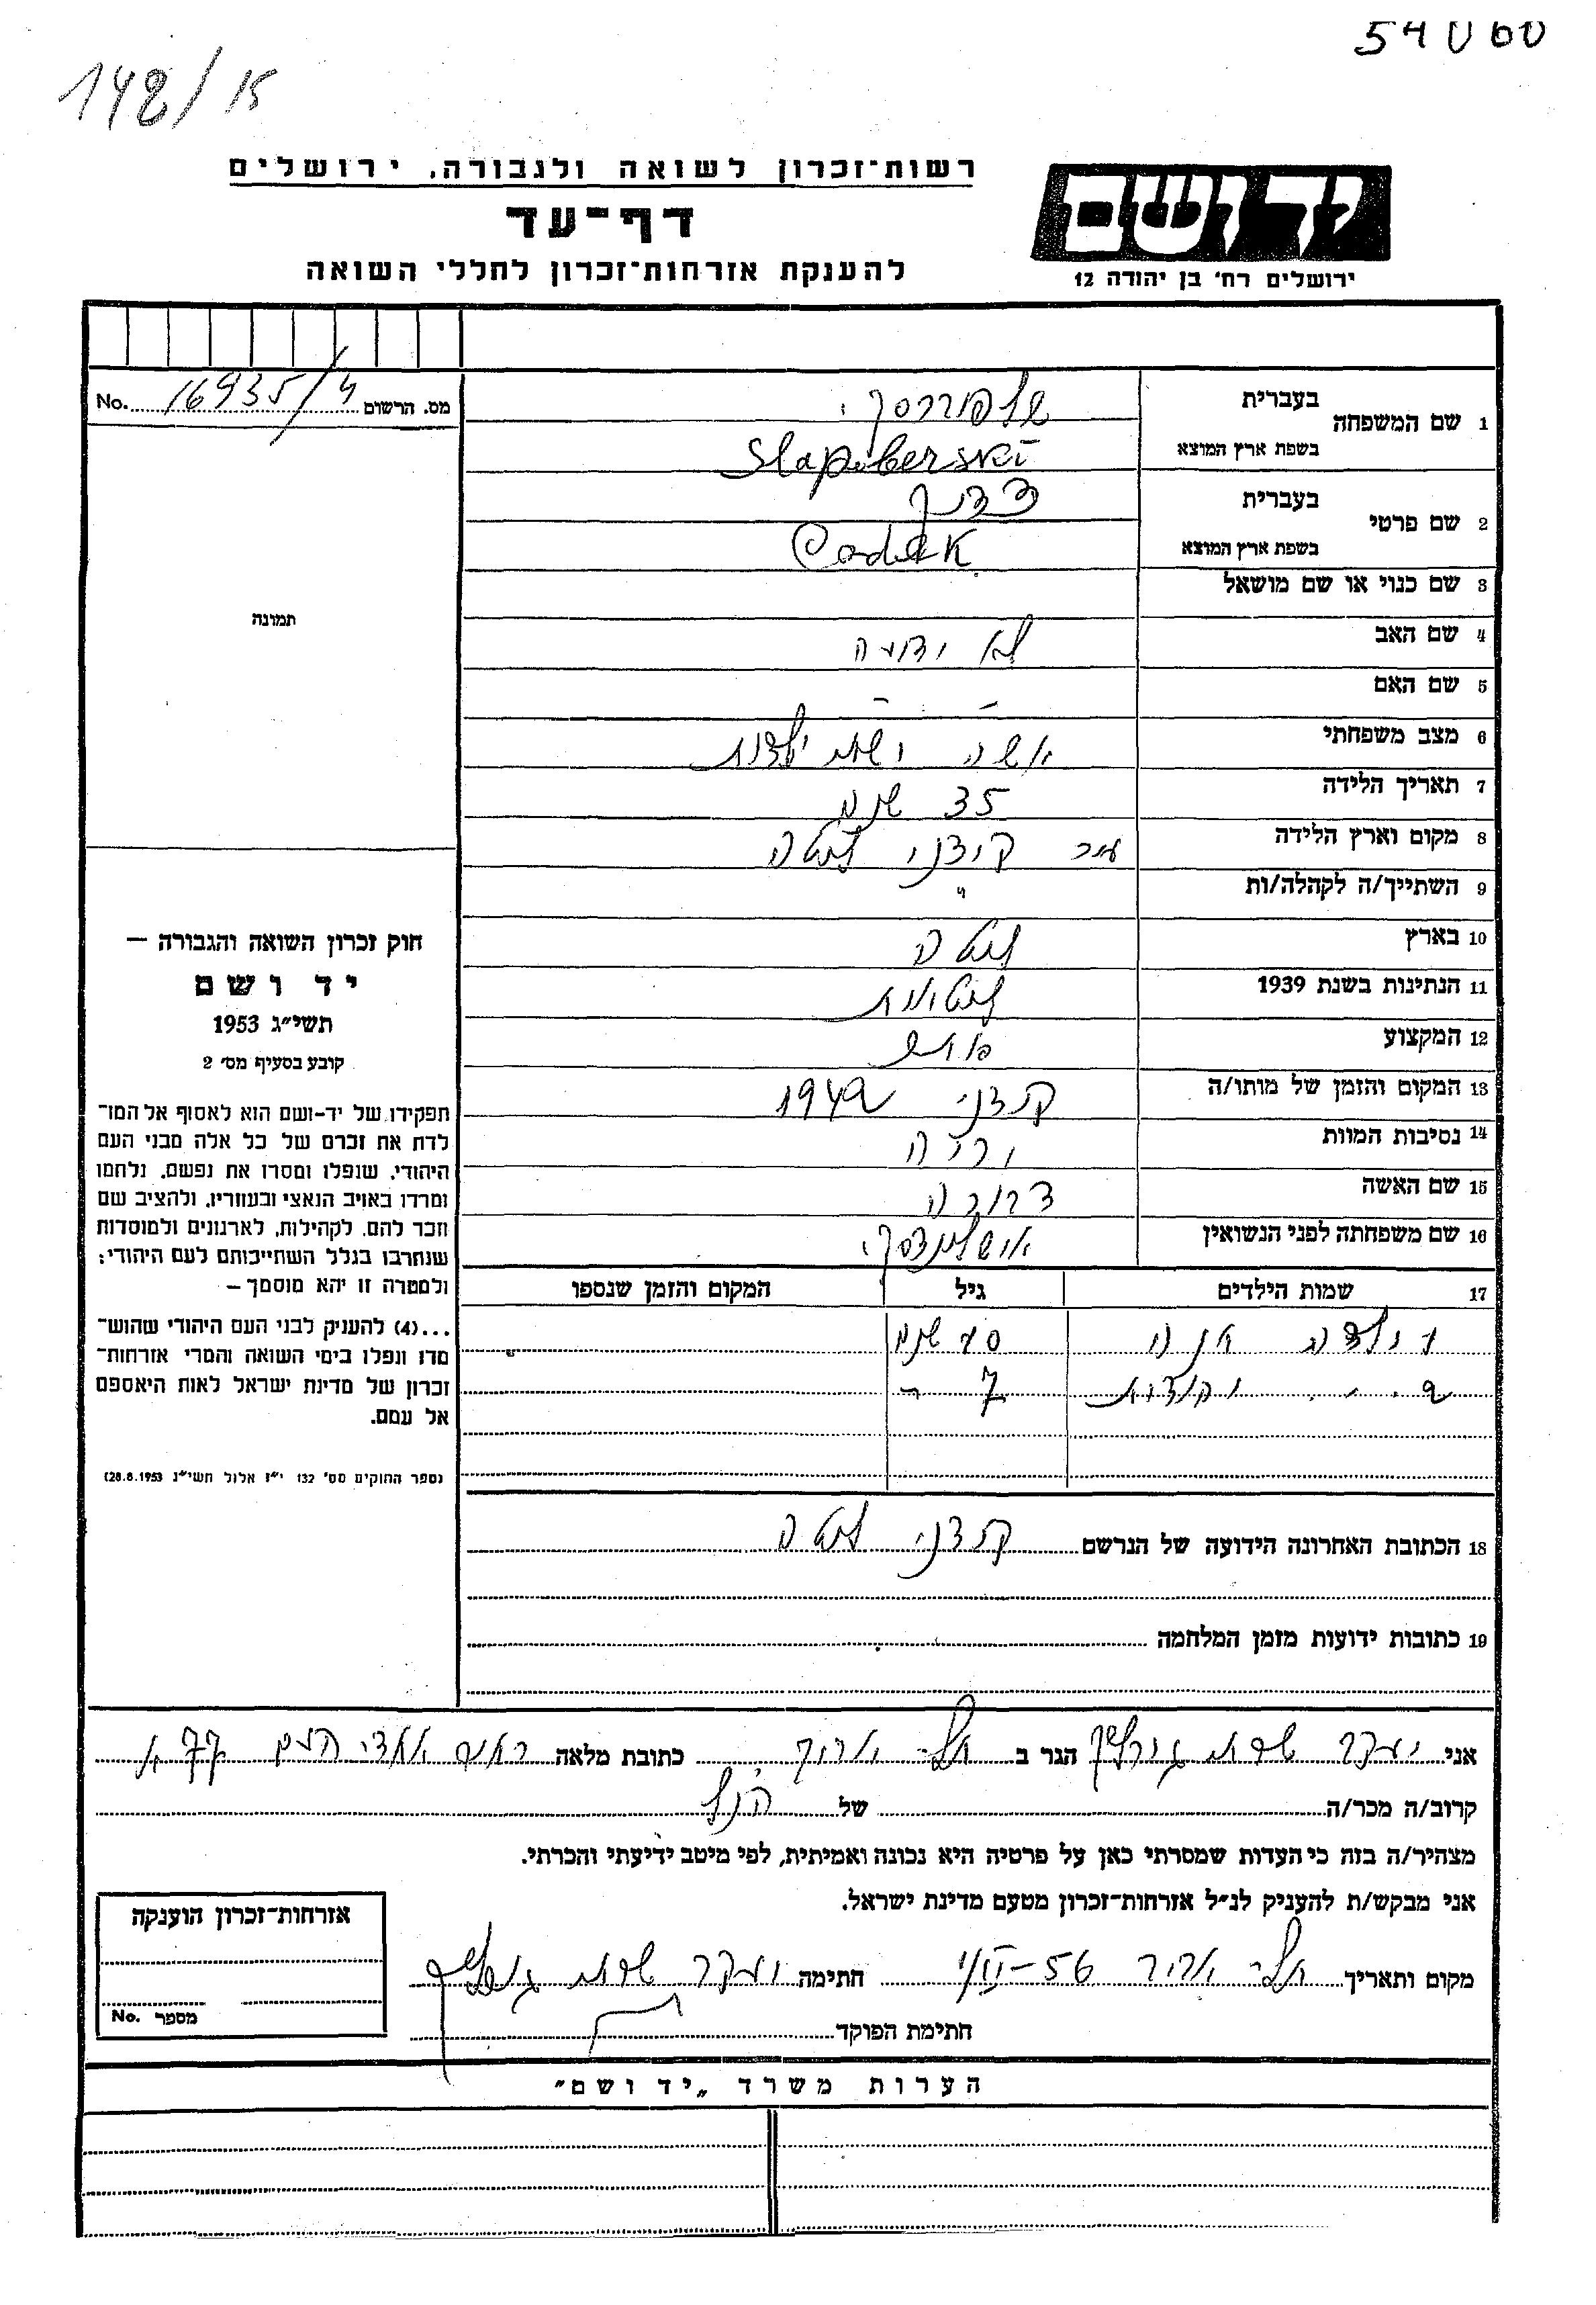 54060
148/15
רשות־זכרון לשואה ולגבורה, ירושלים
יד ושם
דף־עד
להענקת אזרחות־זכרון לחללי השואה
ירושלים רח' בן יהודה 12
מס. הרשום 16935/4 No.
1 שם המשפחה
בעברית
בשפת ארץ המוצא Slapoberski
2 שם פרטי
בעברית צדוק
בשפת ארץ המוצא Cadok
3 שם כנוי או שם מושאל
4 שם האב לא ידוע
5 שם האם - -
6 מצב משפחתי אשה ושתי ילדות
7 תאריך הלידה 35 שנים
8 מקום וארץ הלידה ליטה
9 השתייך/ה לקהלה/ות "
10 בארץ ליטה
11 הנתינות בשנת 1939 ליטאית
12 המקצוע
13 המקום והזמן של מותו/ה 1942
14 נסיבות המוות יריה
15 שם האשה דבורה
16 שם משפחתה לפני הנשואין
17 שמות הילדים גיל המקום והזמן שנספו
ילדה שנים
7
18 הכתובת האחרונה הידועה של הנרשם ליטה
19 כתובות ידועות מזמן המלחמה
תמונה
חוק זכרון השואה והגבורה –
יד ושם
תשי״ג 1953
קובע בסעיף מס' 2
תפקידו של יד-ושם הוא לאסוף אל המו־
לדת את זכרם של כל אלה מבני העם
היהודי, שנפלו ומסרו את נפשם, נלחמו
ומרדו באויב הנאצי ובעוזריו, ולהציב שם
וזכר להם, לקהילות, לארגונים ולמוסדות
שנחרבו בגלל השתייכותם לעם היהודי;
ולמטרה זו יהא מוסמך –
...(4) להעניק לבני העם היהודי שהוש־
מדו ונפלו בימי השואה והמרי אזרחות־
זכרון של מדינת ישראל לאות היאספם
אל עמם.
(ספר החוקים מס' 132 י״ז אלול תשי״ג 28.8.1953)
אני הגר ב תל-אביב כתובת מלאה 77
קרוב/ה מכר/ה של הנ״ל
מצהיר/ה בזה כי העדות שמסרתי כאן על פרטיה היא נכונה ואמיתית, לפי מיטב ידיעתי והכרתי.
אני מבקש/ת להעניק לנ״ל אזרחות־זכרון מטעם מדינת ישראל.
מקום ותאריך תל-אביב חתימה
חתימת הפוקד
אזרחות־זכרון הוענקה
מספר No.
הערות משרד „יד ושם״